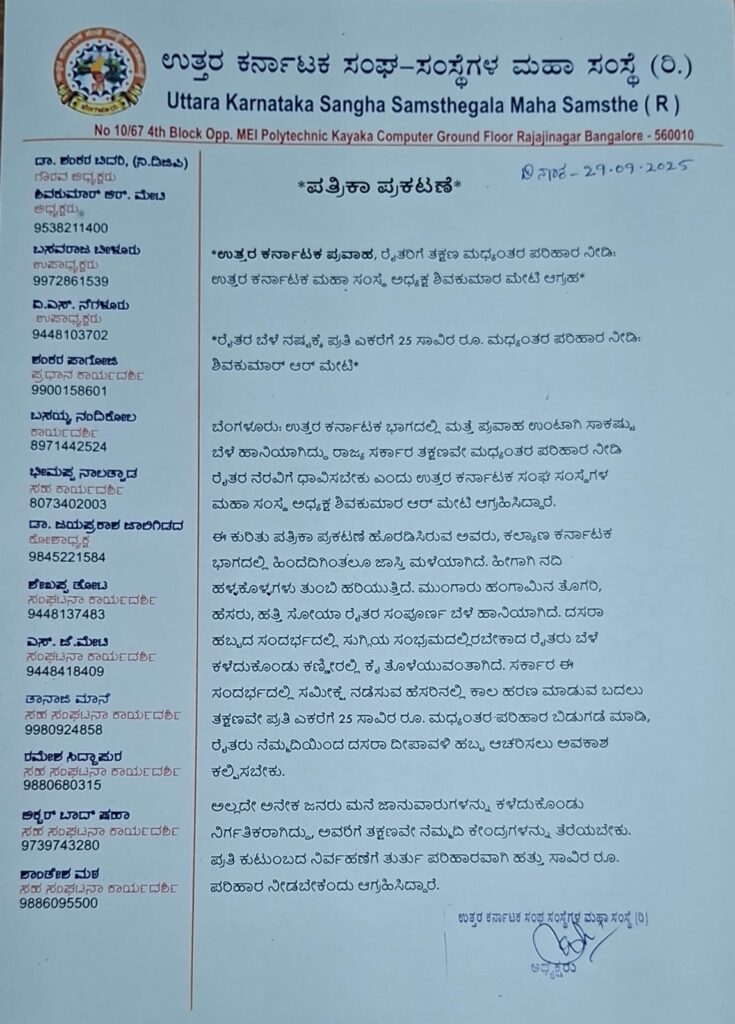 ಉತ್ತರ ಕರ್ನಾಟಕ ಸಂಘ-ಸಂಸ್ಥೆಗಳ ಮಹಾ ಸಂಸ್ಥೆ (ರಿ.)
Uttara Karnataka Sangha Samsthegala Maha Samsthe ( R )
No 10/67 4th Block Opp. MEI Polytechnic Kayaka Computer Ground Floor Rajajinagar Bangalore - 560010
ಡಾ. ಶಂಕರ ಬಿದರಿ, (ನಿ.ಡಿಜಿಪಿ)
ಗೌರವ ಅಧ್ಯಕ್ಷರು
ಶಿವಕುಮಾರ್ ಆರ್. ಮೇಟಿ
ಅಧ್ಯಕ್ಷರು
9538211400
ಬಸವರಾಜ ಬೀಳೂರು
ಉಪಾಧ್ಯಕ್ಷರು
9972861539
ವಿ.ಎಸ್. ನೆಗಳೂರು
ಉಪಾಧ್ಯಕ್ಷರು
9448103702
ಶಂಕರ ಪಾಗೋಜಿ
ಪ್ರಧಾನ ಕಾರ್ಯದರ್ಶಿ
9900158601
ಬಸಯ್ಯ ನಂದಿಕೋಲ
ಕಾರ್ಯದರ್ಶಿ
8971442524
ಭೀಮಪ್ಪ ನಾಲತ್ವಾಡ
ಸಹ ಕಾರ್ಯದರ್ಶಿ
8073402003
ಡಾ. ಜಯಪ್ರಕಾಶ ಜಾಲಿಗಿಡದ
ಕೋಶಾಧ್ಯಕ್ಷ
9845221584
ಶೇಖಪ್ಪ ತೋಟ
ಸಂಘಟನಾ ಕಾರ್ಯದರ್ಶಿ
9448137483
ಎಸ್. ಜಿ.ಮೇಟಿ
ಸಂಘಟನಾ ಕಾರ್ಯದರ್ಶಿ
9448418409
ತಾನಾಜಿ ಮಾನೆ
ಸಹ ಸಂಘಟನಾ ಕಾರ್ಯದರ್ಶಿ
9980924858
ರಮೇಶ ಸಿದ್ದಾಪುರ
ಸಹ ಸಂಘಟನಾ ಕಾರ್ಯದರ್ಶಿ
9880680315
ಅಕ್ಬರ್ ಬಾದ್ ಷಹಾ
ಸಹ ಸಂಘಟನಾ ಕಾರ್ಯದರ್ಶಿ
9739743280
ಶಾಂತೇಶ ಮಠ
ಸಹ ಸಂಘಟನಾ ಕಾರ್ಯದರ್ಶಿ
9886095500
ದಿನಾಂಕ - 29.09.2025
*ಪತ್ರಿಕಾ ಪ್ರಕಟಣೆ*
*ಉತ್ತರ ಕರ್ನಾಟಕ ಪ್ರವಾಹ, ರೈತರಿಗೆ ತಕ್ಷಣ ಮಧ್ಯಂತರ ಪರಿಹಾರ ನೀಡಿ:
ಉತ್ತರ ಕರ್ನಾಟಕ ಮಹಾ ಸಂಸ್ಥೆ ಅಧ್ಯಕ್ಷ ಶಿವಕುಮಾರ ಮೇಟಿ ಆಗ್ರಹ*
*ರೈತರ ಬೆಳೆ ನಷ್ಟಕ್ಕೆ ಪ್ರತಿ ಎಕರೆಗೆ 25 ಸಾವಿರ ರೂ. ಮಧ್ಯಂತರ ಪರಿಹಾರ ನೀಡಿ:
ಶಿವಕುಮಾರ್ ಆರ್ ಮೇಟಿ*
ಬೆಂಗಳೂರು: ಉತ್ತರ ಕರ್ನಾಟಕ ಭಾಗದಲ್ಲಿ ಮತ್ತೆ ಪ್ರವಾಹ ಉಂಟಾಗಿ ಸಾಕಷ್ಟು
ಬೆಳೆ ಹಾನಿಯಾಗಿದ್ದು ರಾಜ್ಯ ಸರ್ಕಾರ ತಕ್ಷಣವೇ ಮಧ್ಯಂತರ ಪರಿಹಾರ ನೀಡಿ
ರೈತರ ನೆರವಿಗೆ ಧಾವಿಸಬೇಕು ಎಂದು ಉತ್ತರ ಕರ್ನಾಟಕ ಸಂಘ ಸಂಸ್ಥೆಗಳ
ಮಹಾ ಸಂಸ್ಥೆ ಅಧ್ಯಕ್ಷ ಶಿವಕುಮಾರ ಆರ್ ಮೇಟಿ ಆಗ್ರಹಿಸಿದ್ದಾರೆ.
ಈ ಕುರಿತು ಪತ್ರಿಕಾ ಪ್ರಕಟಣೆ ಹೊರಡಿಸಿರುವ ಅವರು, ಕಲ್ಯಾಣ ಕರ್ನಾಟಕ
ಭಾಗದಲ್ಲಿ ಹಿಂದೆದಿಗಿಂತಲೂ ಜಾಸ್ತಿ ಮಳೆಯಾಗಿದೆ. ಹೀಗಾಗಿ ನದಿ
ಹಳ್ಳಕೊಳ್ಳಗಳು ತುಂಬಿ ಹರಿಯುತ್ತಿದೆ. ಮುಂಗಾರು ಹಂಗಾಮಿನ ತೊಗರಿ,
ಹೆಸರು, ಹತ್ತಿ ಸೋಯಾ ರೈತರ ಸಂಪೂರ್ಣ ಬೆಳೆ ಹಾನಿಯಾಗಿದೆ. ದಸರಾ
ಹಬ್ಬದ ಸಂದರ್ಭದಲ್ಲಿ ಸುಗ್ಗಿಯ ಸಂಭ್ರಮದಲ್ಲಿರಬೇಕಾದ ರೈತರು ಬೆಳೆ
ಕಳೆದುಕೊಂಡು ಕಣ್ಣೀರಲ್ಲಿ ಕೈ ತೊಳೆಯುವಂತಾಗಿದೆ. ಸರ್ಕಾರ ಈ
ಸಂದರ್ಭದಲ್ಲಿ ಸಮೀಕ್ಷೆ ನಡೆಸುವ ಹೆಸರಿನಲ್ಲಿ ಕಾಲ ಹರಣ ಮಾಡುವ ಬದಲು
ತಕ್ಷಣವೇ ಪ್ರತಿ ಎಕರೆಗೆ 25 ಸಾವಿರ ರೂ. ಮಧ್ಯಂತರ ಪರಿಹಾರ ಬಿಡುಗಡೆ ಮಾಡಿ,
ರೈತರು ನೆಮ್ಮದಿಯಿಂದ ದಸರಾ ದೀಪಾವಳಿ ಹಬ್ಬ ಆಚರಿಸಲು ಅವಕಾಶ
ಕಲ್ಪಿಸಬೇಕು.
ಅಲ್ಲದೇ ಅನೇಕ ಜನರು ಮನೆ ಜಾನುವಾರುಗಳನ್ನು ಕಳೆದುಕೊಂಡು
ನಿರ್ಗತಿಕರಾಗಿದ್ದು, ಅವರಿಗೆ ತಕ್ಷಣವೇ ನೆಮ್ಮದಿ ಕೇಂದ್ರಗಳನ್ನು ತೆರೆಯಬೇಕು.
ಪ್ರತಿ ಕುಟುಂಬದ ನಿರ್ವಹಣೆಗೆ ತುರ್ತು ಪರಿಹಾರವಾಗಿ ಹತ್ತು ಸಾವಿರ ರೂ.
ಪರಿಹಾರ ನೀಡಬೇಕೆಂದು ಆಗ್ರಹಿಸಿದ್ದಾರೆ.
ಉತ್ತರ ಕರ್ನಾಟಕ ಸಂಘ ಸಂಸ್ಥೆಗಳ ಮಹಾ ಸಂಸ್ಥೆ (ರಿ)
ಅಧ್ಯಕ್ಷರು